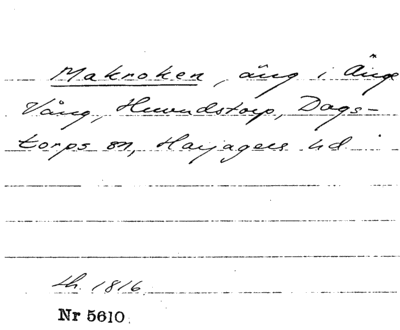 Makroken, äng i Änge
Vång, Huvudstorp, Dags-
torps sn, Harjagers hd
th. 1816
Nr 5610